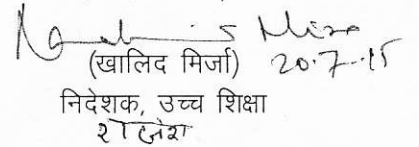 (खालिद मिर्जा) 20.7.15
निदेशक, उच्च शिक्षा